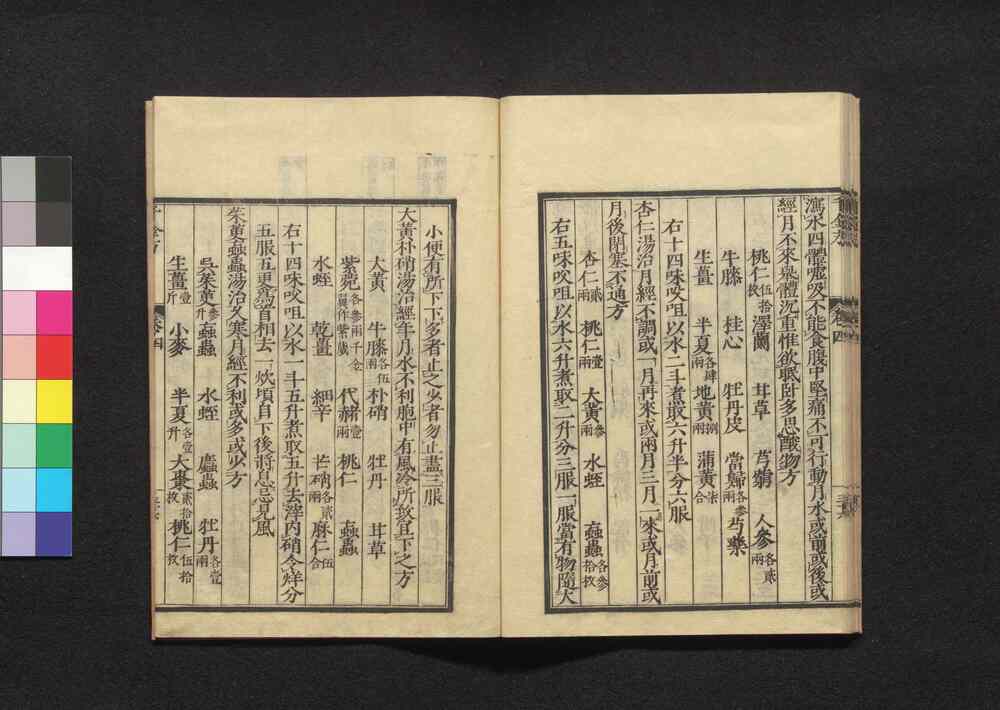 瀉水四體噓吸不能食腹中堅痛不可行動月水或前或後或
經月不來舉體沉重惟欲眠卧多思酸物方
桃仁伍拾枚 澤蘭 甘草 芎藭 人參各貳兩
牛膝 桂心 牡丹皮 當歸各參兩 芍藥
生薑 半夏各肆兩 地黃捌兩 蒲黃柒合
右十四味㕮咀以水二斗煮取六升半分六服
杏仁湯治月經不調或一月再來或兩月三月一來或月前或
月後閉塞不通方
杏仁貳兩 桃仁壹兩 大黃參兩 水蛭 蝱蟲各參拾枚
右五味㕮咀以水六升煮取二升分三服一服當有物隨大
小便有所下下多者止之少者勿止盡三服
大黃朴硝湯治經年月水不利胞中有風冷所致宜下之方
大黃 牛膝各伍兩 朴硝 牡丹 甘草
紫菀各參兩千金翼作紫葳 代赭壹兩 桃仁 蝱蟲
水蛭 乾薑 細辛 芒硝各貳兩 麻仁伍合
右十四味㕮咀以水一斗五升煮取五升去滓內硝令烊分
五服五更爲首相去一炊頃自下後將息忌見風
茱萸蝱蟲湯治久寒月經不利或多或少方
吳茱萸參升 蝱蟲 水蛭 䗪蟲 牡丹各壹兩
生薑壹斤 小麥 半夏各壹升 大棗貳拾枚 桃仁伍拾枚